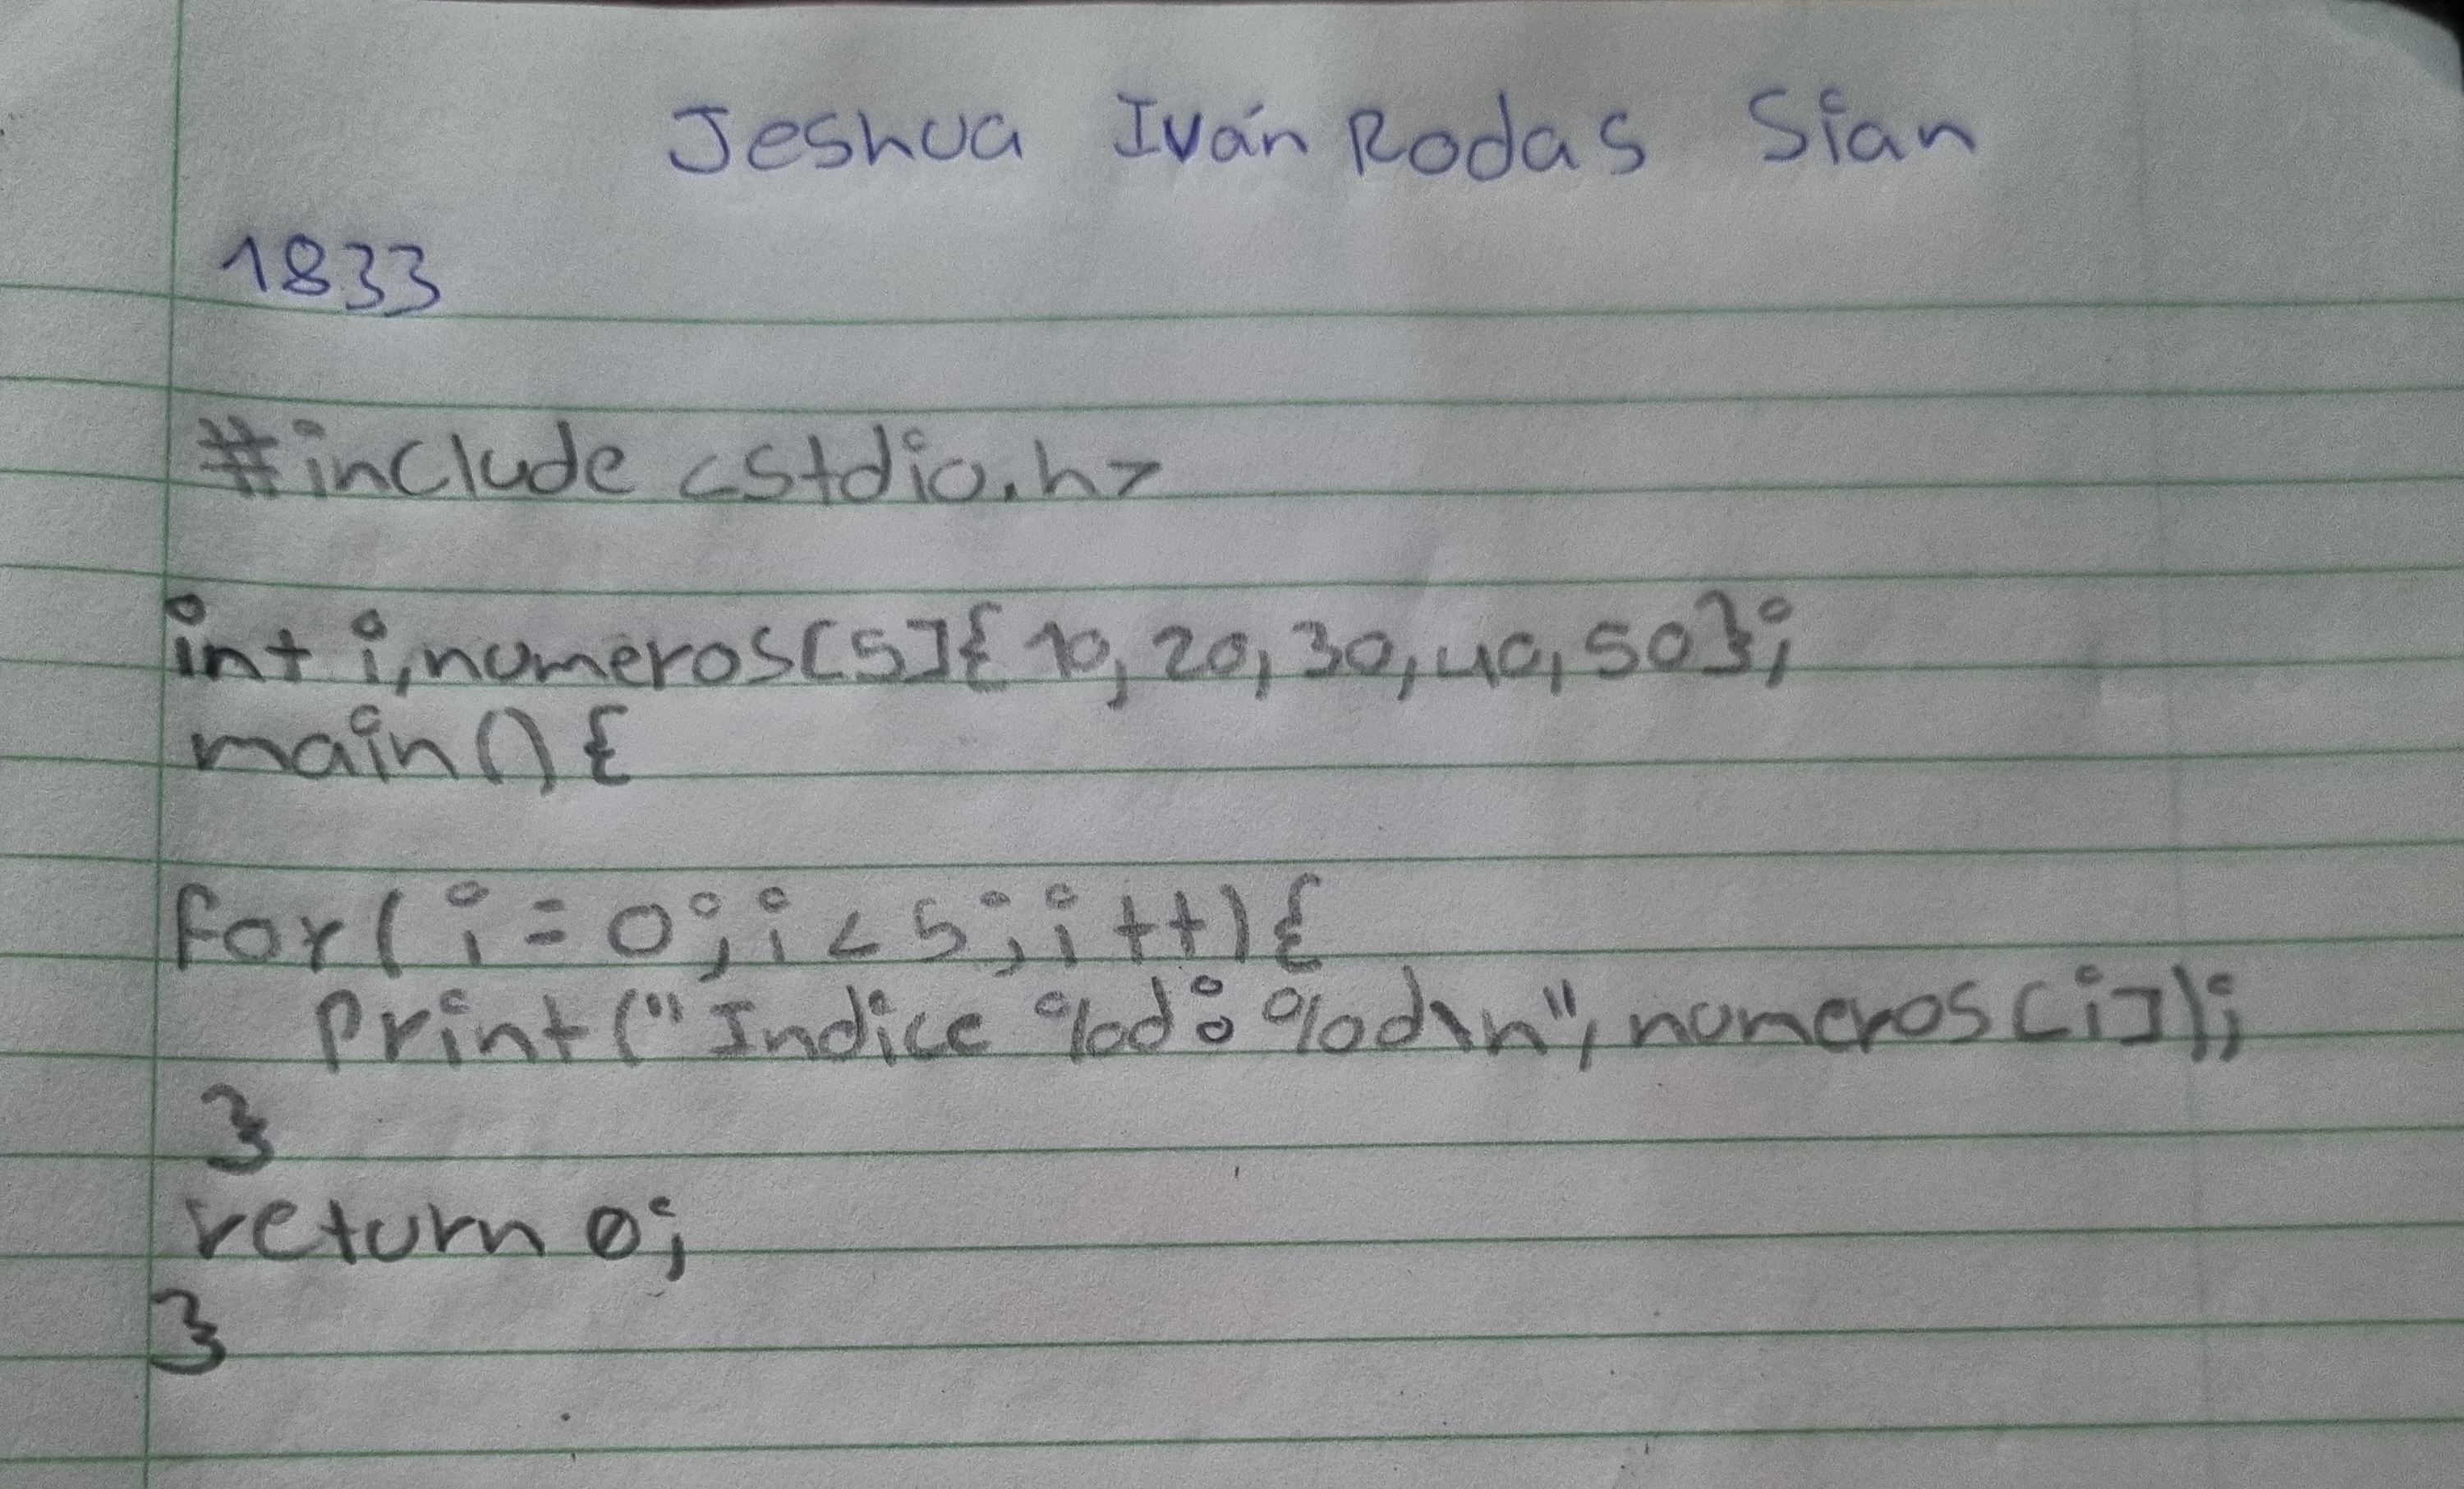 Jeshua Iván Rodas Sian
1833
#include <stdio.h>
int i,numeros[5]{10,20,30,40,50};
main(){
for(i=0;i<5;i++){
print("Indice %d:%d\n",numeros[i]);
}
return 0;
}